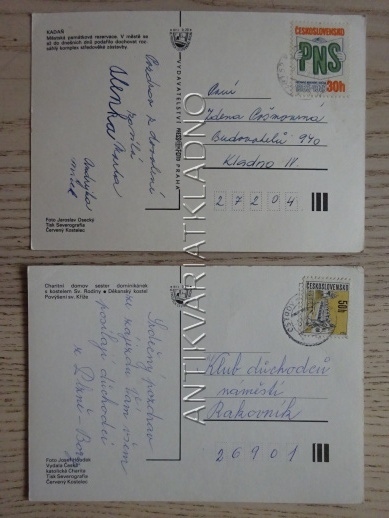 KADAŇ
Městská památková rezervace. V městě se
až do dnešních dnů podařilo dochovat roz-
sáhlý komplex středověké zástavby.
Pozdrav z dovolené
posílá
Olenka
Foto Jaroslav Osecký
Tisk Severografia
Červený Kostelec
VYDAVATELSTVÍ
PRAHA
ČESKOSLOVENSKO
PNS
30h
Paní
Zdena
Budovatelů 940
Kladno IV.
27204
ANTIKVARIATKLADNO
Charitní domov sester dominikánek
s kostelem Sv. Rodiny • Děkanský kostel
Povýšení sv. Kříže
Srdečný pozdrav
ze zájezdu Vám všem
posílají důchodci
z
Foto Josef
Vydala Česká
katolická Charita
Tisk Severografia
Červený Kostelec
ČESKOSLOVENSKO
50h
Klub důchodců
náměstí
Rakovník
26901